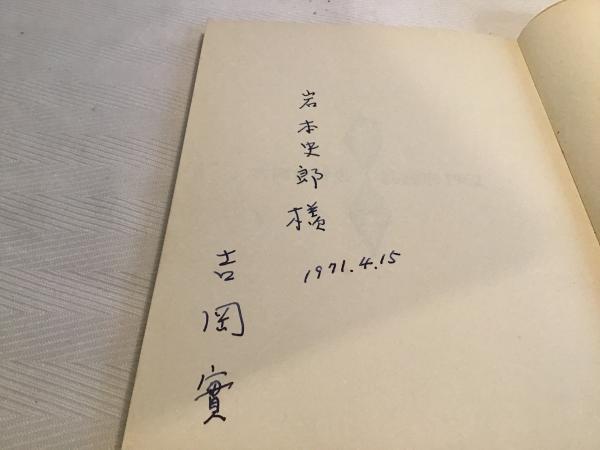 岩本史郎様
1971.4.15
吉岡實